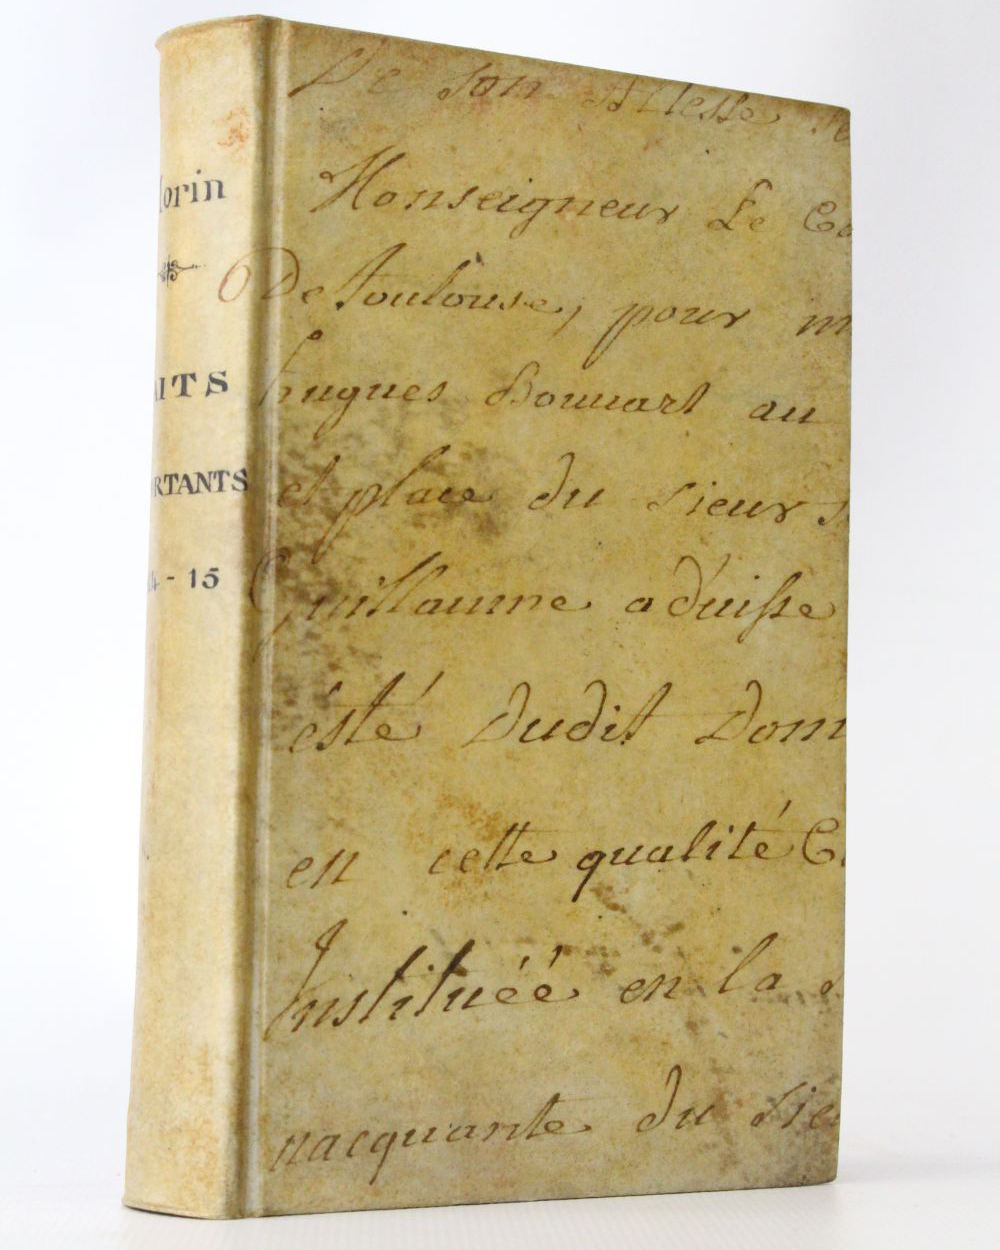 orin
AITS
RTANTS
4 - 15
De son Altesse Se
Monseigneur Le Co
De Toulouse, pour m
hugues Bouuart au
et place du sieur
Guillaume aduisse
ésté dudit Dom
en cette qualité C
Instituéé en la
nacquante du sie